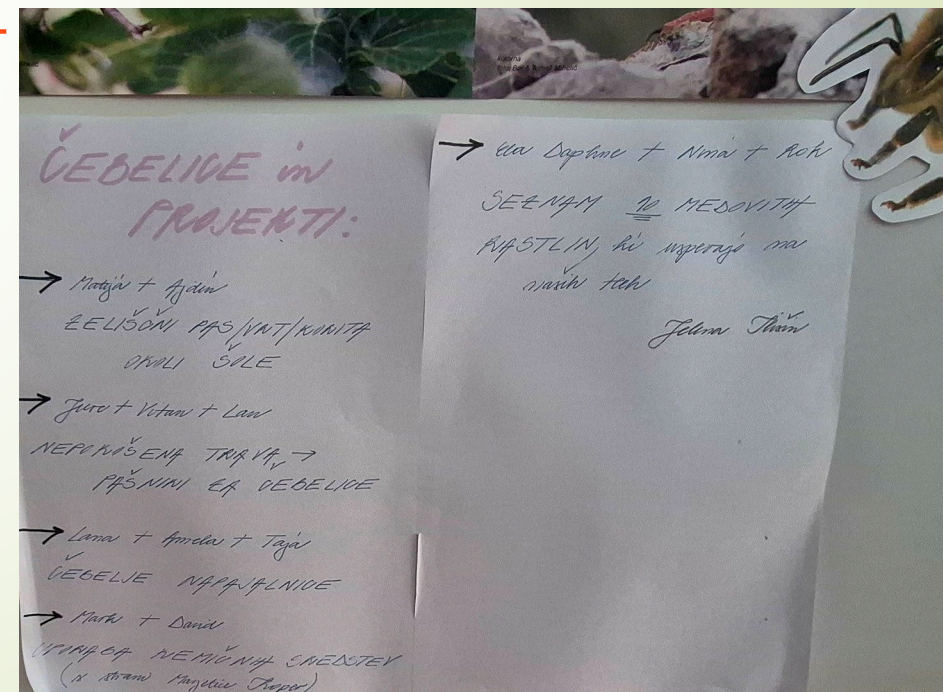 ČEBELICE in
PROJEKTI:
→ Matija + Ajdin
ZELIŠČNI PAS/VRT/KORITA
OKOLI ŠOLE
→ Jure + Vitan + Lan
NEPOKOŠENA TRAVA →
PAŠNIKI ZA ČEBELICE
→ Lana + Amela + Taja
ČEBELJE NAPAJALNICE
→ Mark + David
UPORABA KEMIČNIH SREDSTEV
(s strani Marjetice Koper)
→ Ela Daphne + Nina + Rok
SEZNAM 10 MEDOVITIH
RASTLIN, ki uspevajo na
naših tleh
Jelena